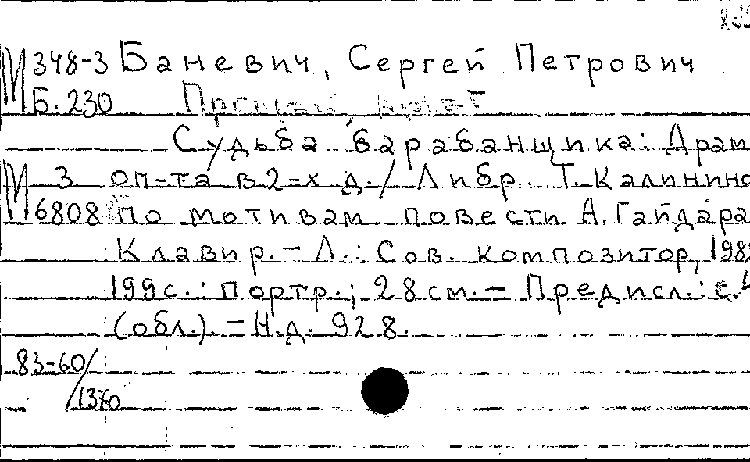 М 348-3 Баневич, Сергей Петрович
Б. 230
Судьба барабанщика: Драм
М 3 оп-та в 2-х д. / Либр. Т. Калинино
6808 по мотивам повести А. Гайдара
Клавир. – Л.: Сов. композитор, 198
199 с.: портр.; 28 см. – Предисл.: с.
(обл.). – Н.д. 928.
83-60/
1360